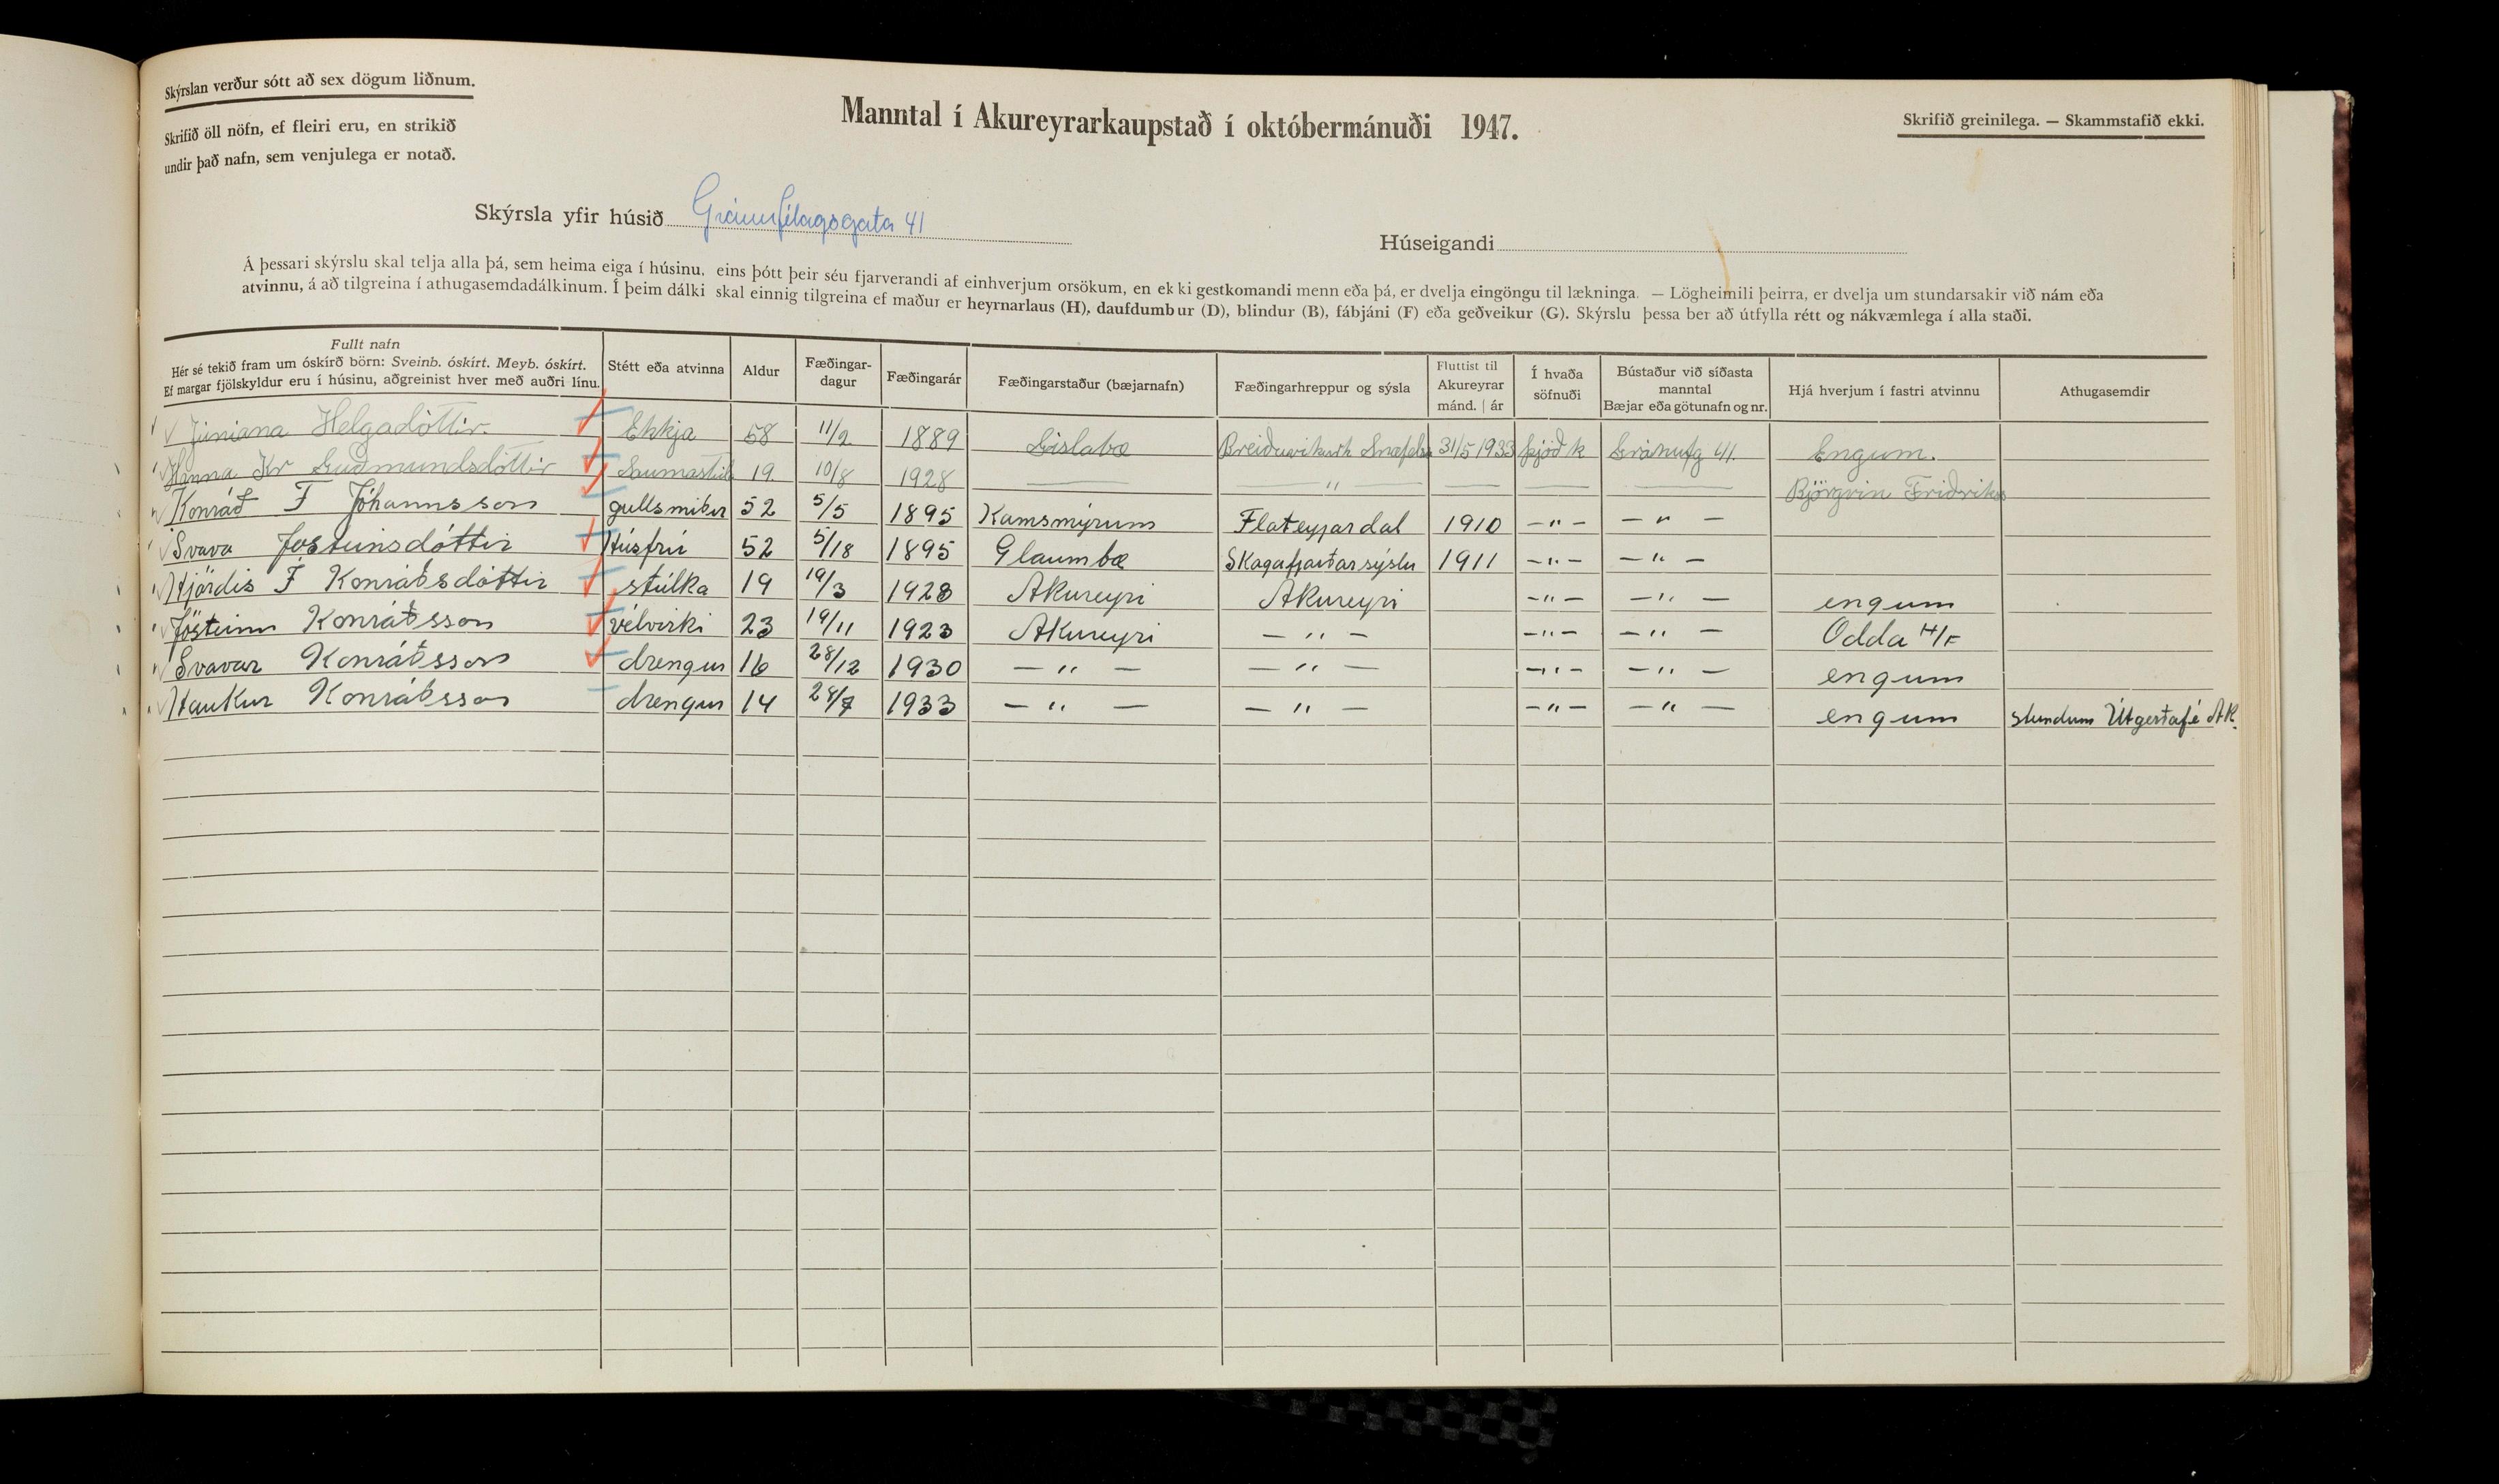 Skýrslan verður sótt að sex dögum liðnum.
Skrifið öll nöfn, ef fleiri eru, en strikið
undir það nafn, sem venjulega er notað.
Manntal í Akureyrarkaupstað í októbermánuði 1947.
Skrifið greinilega. — Skammstafið ekki.
Skýrsla yfir húsið Gránufélagsgata 41
Húseigandi
Á þessari skýrslu skal telja alla þá, sem heima eiga í húsinu, eins þótt þeir séu fjarverandi af einhverjum orsökum, en ekki gestkomandi menn eða þá, er dvelja eingöngu til lækninga. — Lögheimili þeirra, er dvelja um stundarsakir við nám eða
atvinnu, á að tilgreina í athugasemdadálkinum. Í þeim dálki skal einnig tilgreina ef maður er heyrnarlaus (H), daufdumbur (D), blindur (B), fábjáni (F) eða geðveikur (G). Skýrslu þessa ber að útfylla rétt og nákvæmlega í alla staði.
Fullt nafn
Hér sé tekið fram um óskírð börn: Sveinb. óskírt. Meyb. óskírt.
Ef margar fjölskyldur eru í húsinu, aðgreinist hver með auðri línu.
Stétt eða atvinna
Aldur
Fæðingar-
dagur
Fæðingarár
Fæðingarstaður (bæjarnafn)
Fæðingarhreppur og sýsla
Fluttist til
Akureyrar
mánd. | ár
Í hvaða
söfnuði
Bústaður við síðasta
manntal
Bæjar eða götunafn og nr.
Hjá hverjum í fastri atvinnu
Athugasemdir
Júníana Helgadóttir. Ekkja 58 11/2 1889 Gíslabæ Breiðuvíkurh Snæfels 31/5 1933 þjóðk Gránufg 41. Engum.
Hanna Kr Guðmundsdóttir Saumastúlk 19. 10/8 1928 — — " — — — — Björgvin Friðriks
Konráð F Jóhannsson gullsmiður 52 5/5 1895 Kamsmýrum Flateyjardal 1910 — " — — " —
Svava Jósteinsdóttir Húsfrú 52 5/18 1895 Glaumbæ Skagafjarðarsýslu 1911 — " — — " —
Hjördís F Konráðsdóttir stúlka 19 19/3 1928 Akureyri Akureyri — " — — " — engum
Jósteinn Konráðsson vélvirki 23 19/11 1923 Akureyri — " — — " — — " — Odda H/F
Svavar Konráðsson drengur 16 28/12 1930 — " — — " — — " — — " — engum
Haukur Konráðsson drengur 14 24/7 1933 — " — — " — — " — — " — engum stundum Útgerðafé AK.